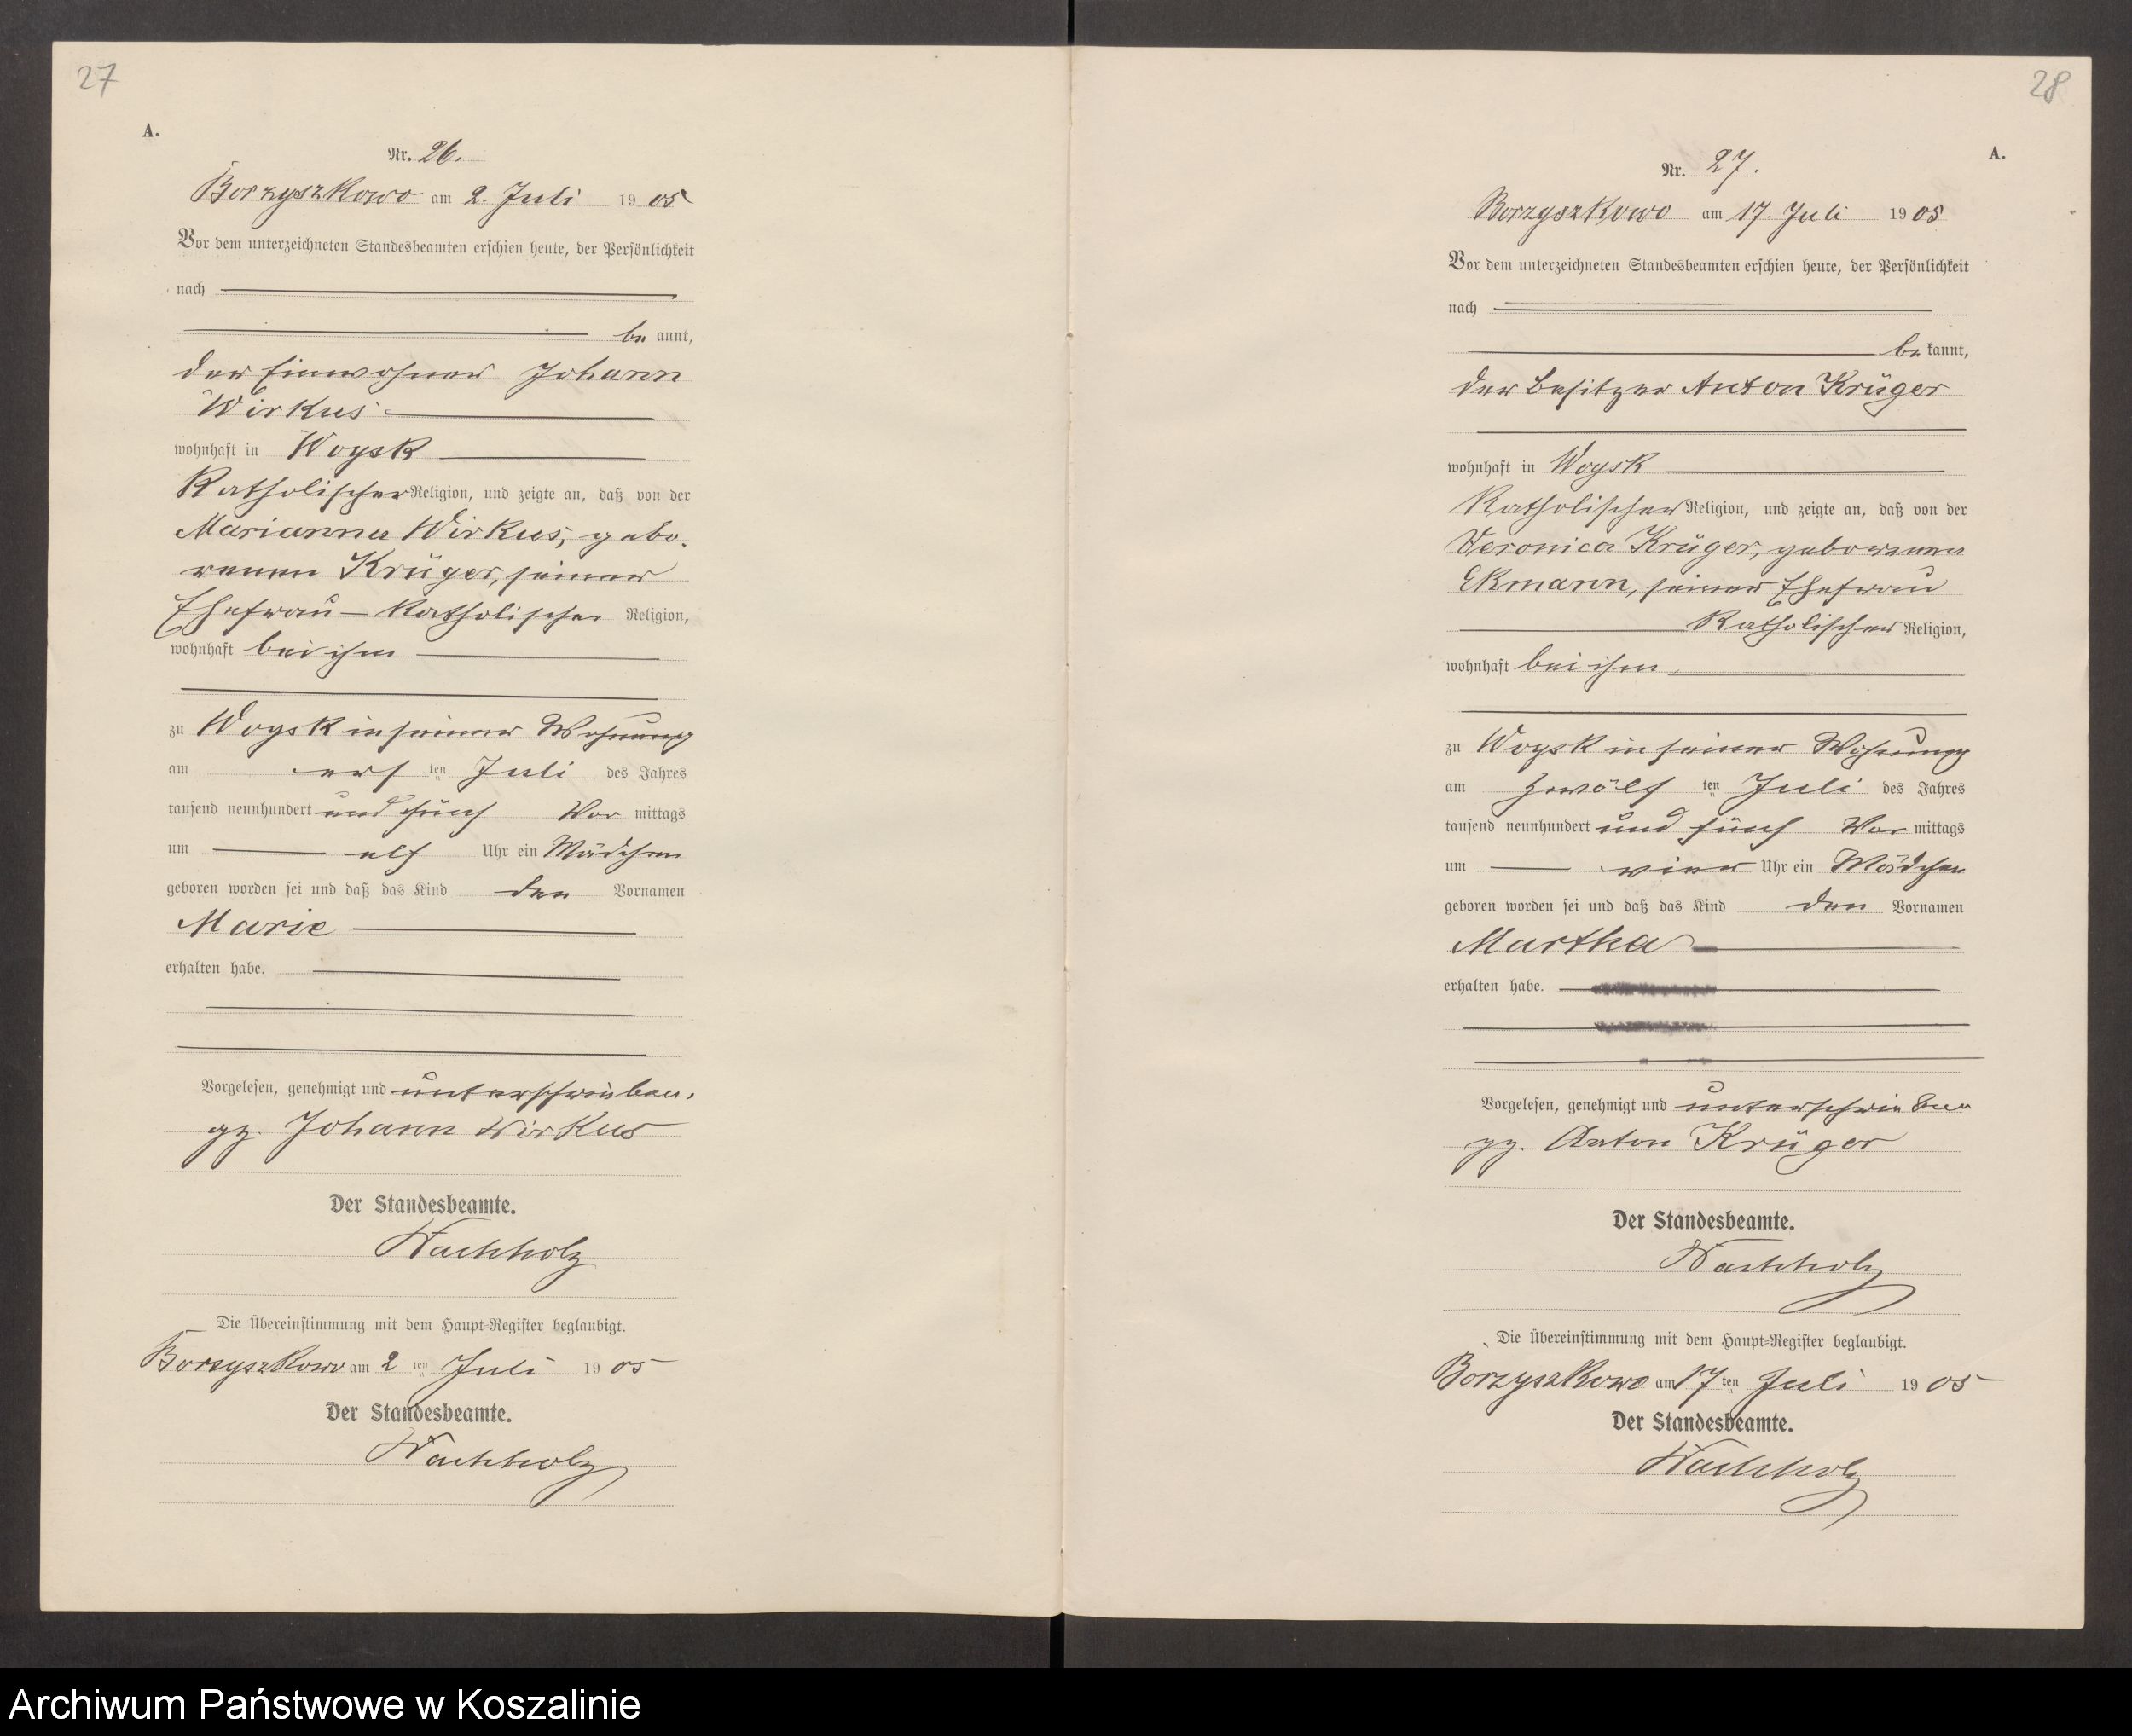 27
A.
Nr. 26.
Borzyszkowo am 2. Juli 1905
Vor dem unterzeichneten Standesbeamten erschien heute, der Persönlichkeit
nach
be annt,
der Einwohner Johann
Wirkus
wohnhaft in Woysk
katholischer Religion, und zeigte an, daß von der
Marianna Wirkus, gebo-
renen Krüger, seiner
Ehefrau – katholischer Religion,
wohnhaft bei ihm
zu Woysk in seiner Wohnung
am ers ten Juli des Jahres
tausend neunhundert und fünf Vor mittags
um elf Uhr ein Mädchen
geboren worden sei und daß das Kind den Vornamen
Marie
erhalten habe.
Vorgelesen, genehmigt und unterschrieben.
gz. Johann Wirkus
Der Standesbeamte.
Wachholz
Die Übereinstimmung mit dem Haupt-Register beglaubigt.
Borzyszkowo am 2 ten Juli 1905
Der Standesbeamte.
Wachholz
28
A.
Nr. 27.
Borzyszkowo am 17. Juli 1905
Vor dem unterzeichneten Standesbeamten erschien heute, der Persönlichkeit
nach
be kannt,
der Besitzer Anton Krüger
wohnhaft in Woysk
katholischer Religion, und zeigte an, daß von der
Veronica Krüger, geborenen
Ekmann, seiner Ehefrau
katholischer Religion,
wohnhaft bei ihm,
zu Woysk in seiner Wohnung
am zwölf ten Juli des Jahres
tausend neunhundert und fünf Vor mittags
um vier Uhr ein Mädchen
geboren worden sei und daß das Kind den Vornamen
Martha
erhalten habe.
Vorgelesen, genehmigt und unterschrieben
gz. Anton Krüger
Der Standesbeamte.
Wachholz
Die Übereinstimmung mit dem Haupt-Register beglaubigt.
Borzyszkowo am 17 ten Juli 1905
Der Standesbeamte.
Wachholz
Archiwum Państwowe w Koszalinie